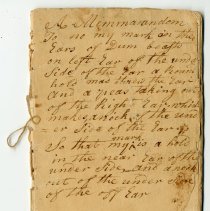 A Memmarandom
to no my mark in the
Ears of Dum beasts
on left Ear of the und
Side of the Ear a room
hold mad threw the Ear
And a peas taking out
of the Right Ear which
makes a nock of the und
er Side of the Ear
mark
So that my is a hold
in the near Ear of the
under Side and a nock
out of the under Side
of the off Ear